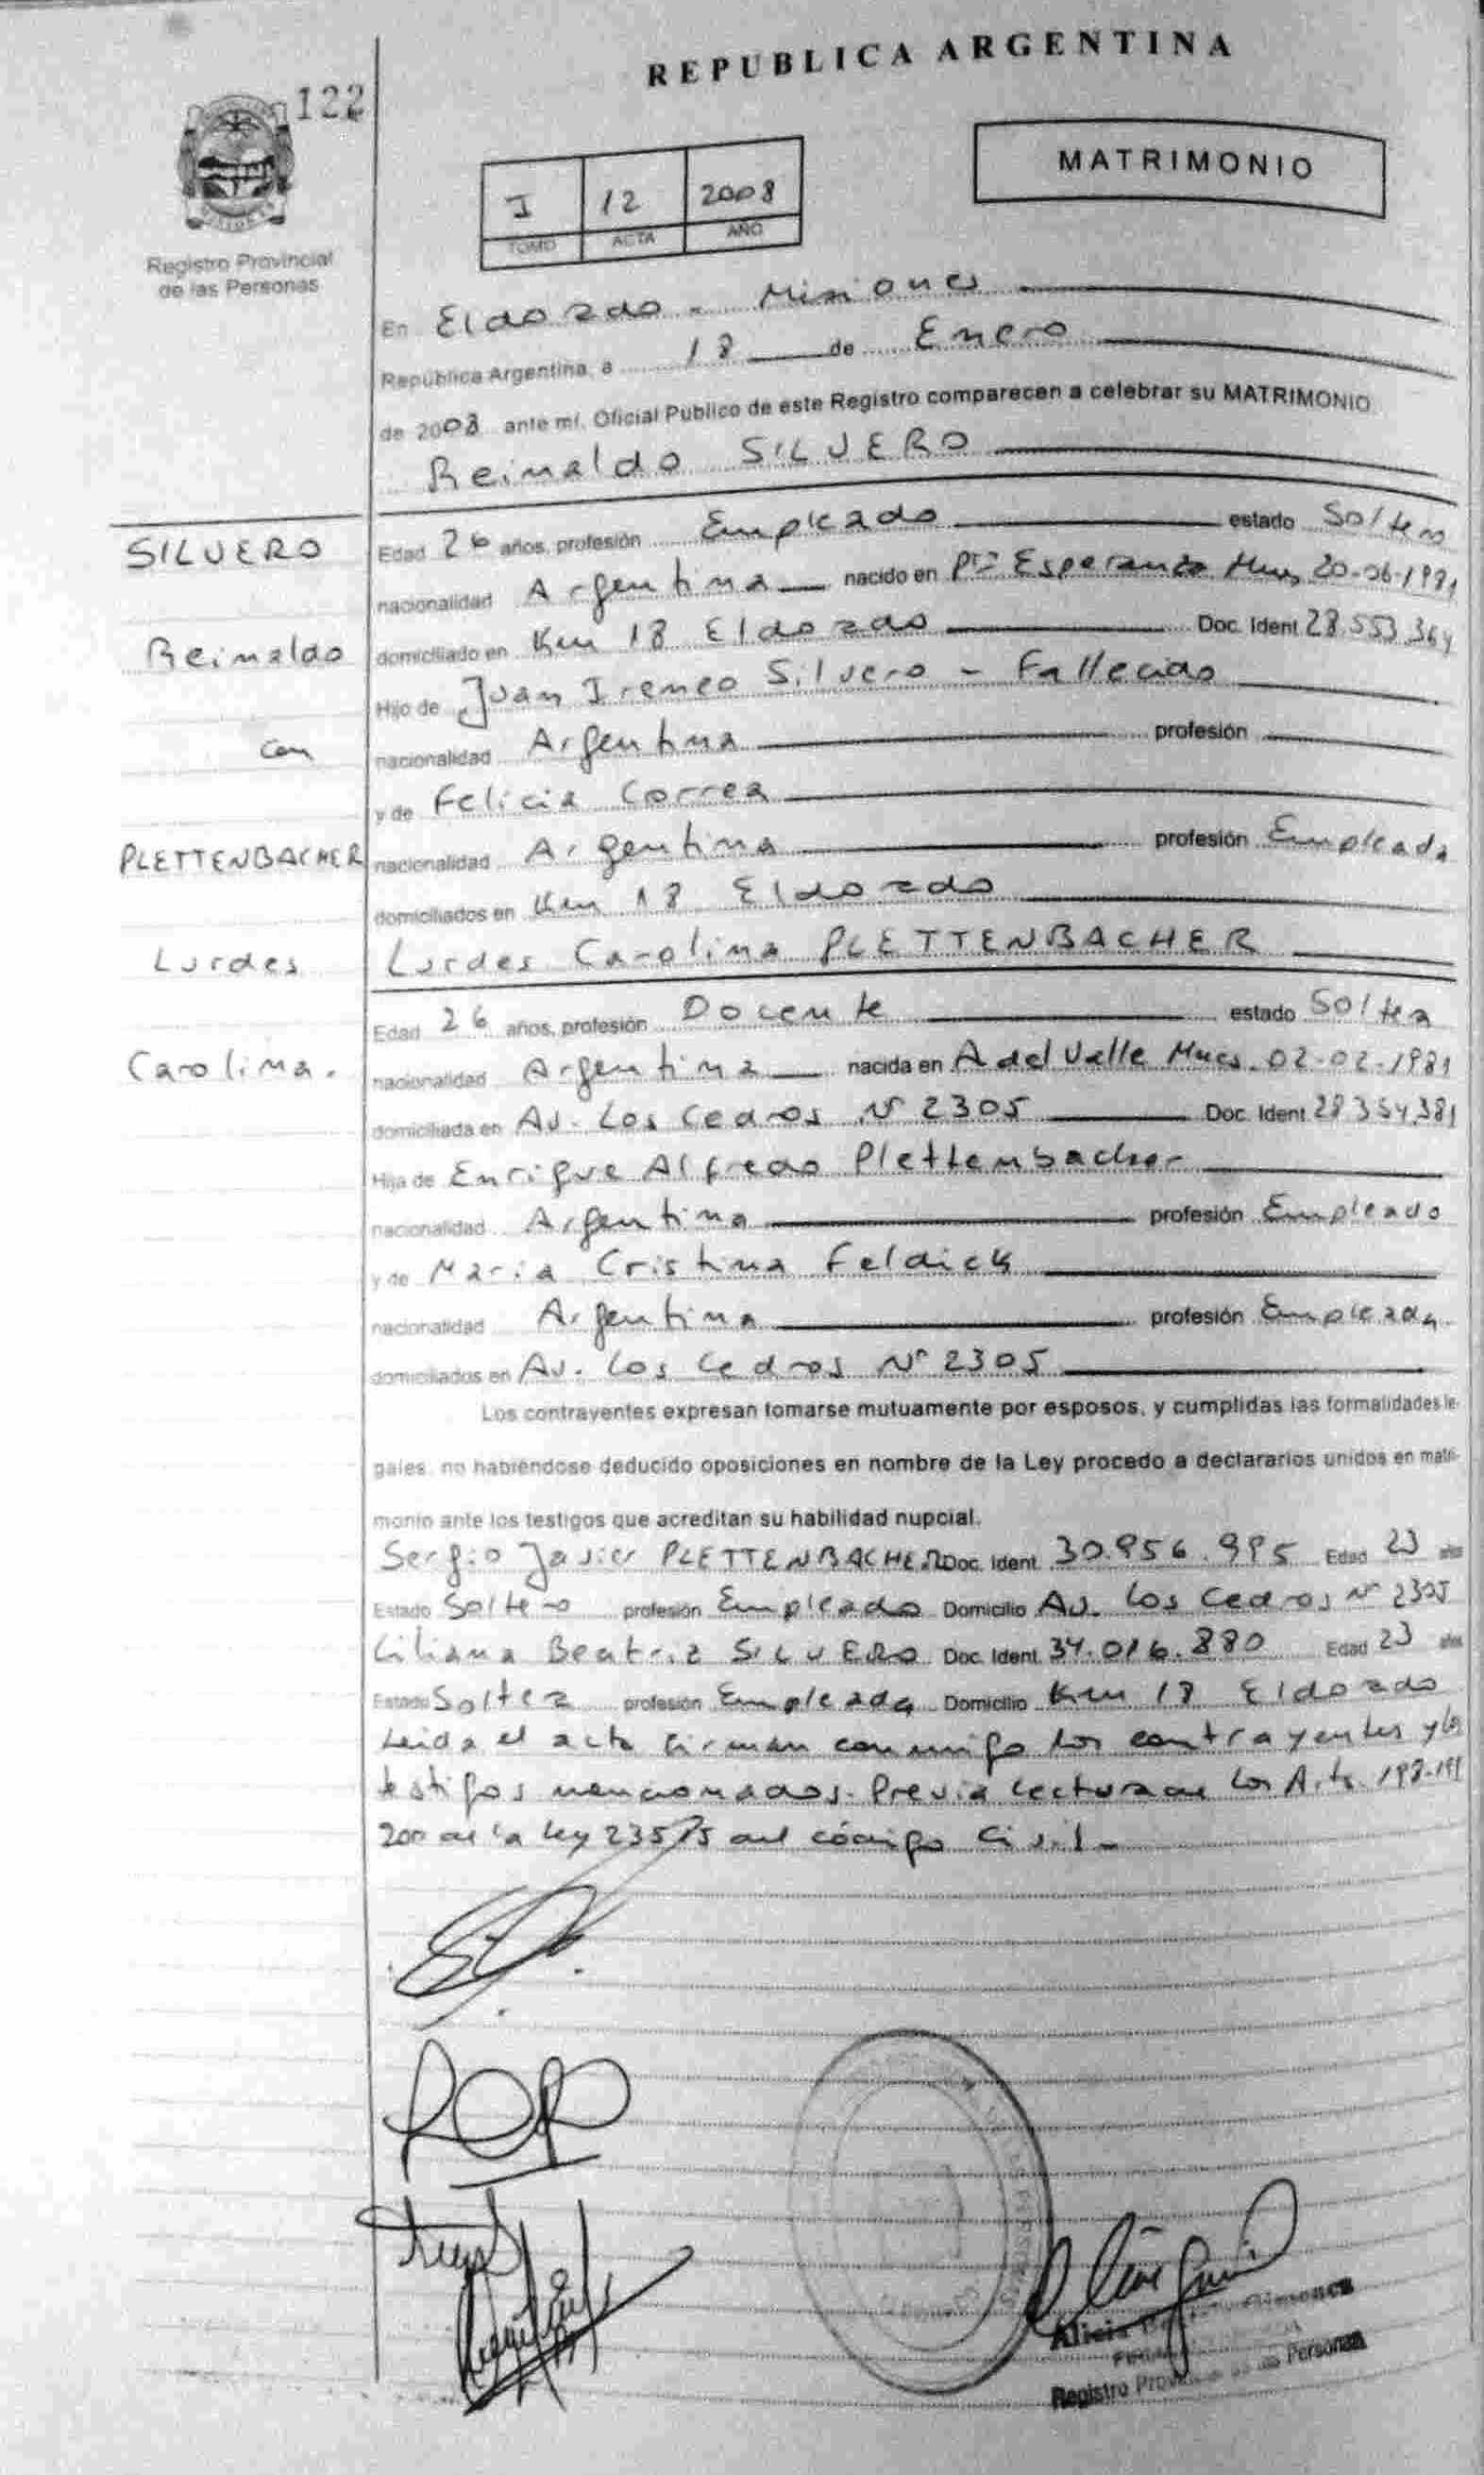 REPUBLICA ARGENTINA
122
MATRIMONIO
I 12 2008
TOMO ACTA AÑO
Registro Provincial
de las Personas
En Eldorado - Misiones
República Argentina, a 18 de Enero
de 2008 ante mí, Oficial Público de este Registro comparecen a celebrar su MATRIMONIO
Reinaldo SILVERO
SILVERO
Edad 26 años, profesión Empleado estado Soltero
nacionalidad Argentina nacido en Pto Esperanza Mnes 20-06-1981
Reinaldo
domiciliado en Km 18 Eldorado Doc. Ident 28.553.364
Hijo de Juan Ireneo Silvero - Fallecido
con
nacionalidad Argentina profesión
y de Felicia Correa
PLETTENBACHER
nacionalidad Argentina profesión Empleada
domiciliados en Km 18 Eldorado
Lurdes
Lurdes Carolina PLETTENBACHER
Edad 26 años, profesión Docente estado Soltera
Carolina.
nacionalidad Argentina nacida en A del Valle Mnes. 02-02-1981
domiciliada en Av. Los Cedros N° 2305 Doc. Ident 28.354.381
Hija de Enrique Alfredo Plettenbacher
nacionalidad Argentina profesión Empleado
y de Maria Cristina Feldick
nacionalidad Argentina profesión Empleada
domiciliados en Av. Los Cedros N° 2305
Los contrayentes expresan tomarse mutuamente por esposos, y cumplidas las formalidades le-
gales, no habiéndose deducido oposiciones en nombre de la Ley procedo a declararlos unidos en matri-
monio ante los testigos que acreditan su habilidad nupcial.
Sergio Javier PLETTENBACHER Doc. Ident. 30.956.995 Edad 23 años
Estado Soltero profesión Empleado Domicilio Av. Los Cedros N° 2305
Liliana Beatriz SILVERO Doc. Ident. 34.016.880 Edad 23 años
Estado Soltera profesión Empleada Domicilio Km 18 Eldorado
Leida el acta firman conmigo los contrayentes y los
testigos mencionados. Previa lectura de los Arts. 198-199
200 de la ley 23515 del código Civil-
Alicia Gimenez
Registro Provincial de las Personas